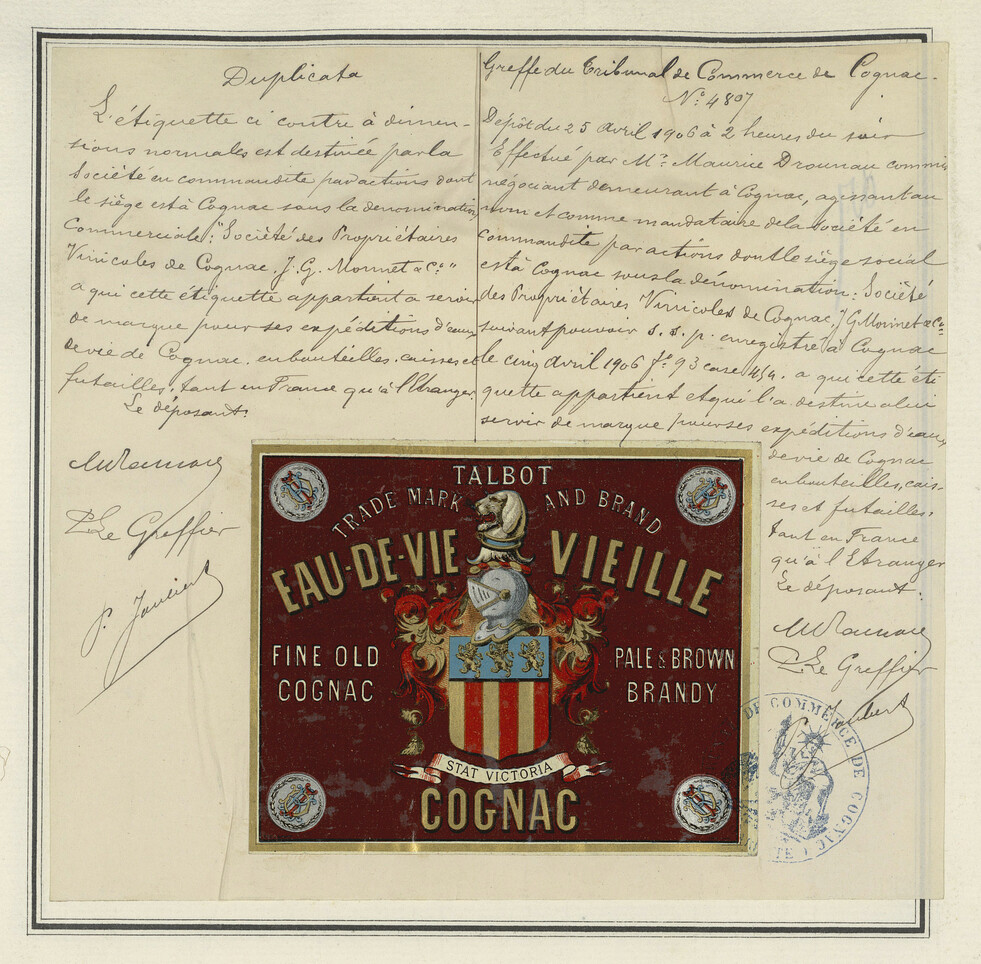 Duplicata
L'étiquette ci contre à dimen-
sions normales est destinée par la
Société en commandite par actions dont
le siège est à Cognac sous la dénomination
Commerciale: "Société des Propriétaires
Vinicoles de Cognac. J. G. Monnet & Cie"
a qui cette étiquette appartient a servir
de marque pour ses expéditions d'eaux
de vie de Cognac en bouteilles, caisses et
futailles, tant en France qu'à l'Etranger.
Le déposant:
Le Greffier
Greffe du Tribunal de Commerce de Cognac.
No 4807
Dépôt du 25 Avril 1906 à 2 heures du soir
Effectué par Mr Maurice Drounau commis
négociant demeurant à Cognac, agissant au
nom et comme mandataire de la Société en
commandite par actions dont le siège social
est à Cognac sous la dénomination: Société
des Propriétaires Vinicoles de Cognac, J. G. Monnet & Cie
suivant pouvoir s. s. p. enregistré à Cognac
le cinq Avril 1906 Fo 93 case 454. a qui cette éti
quette appartient et qui l'a destine a lui
servir de marque pour ses expéditions d'eaux
de vie de Cognac
en bouteilles, cais-
ses et futailles,
tant en France
qu'à l'Etranger
Le déposant:
Le Greffier
TALBOT
TRADE MARK AND BRAND
EAU-DE-VIE VIEILLE
FINE OLD
COGNAC
PALE & BROWN
BRANDY
STAT VICTORIA
COGNAC
DE COMMERCE DE COGNAC